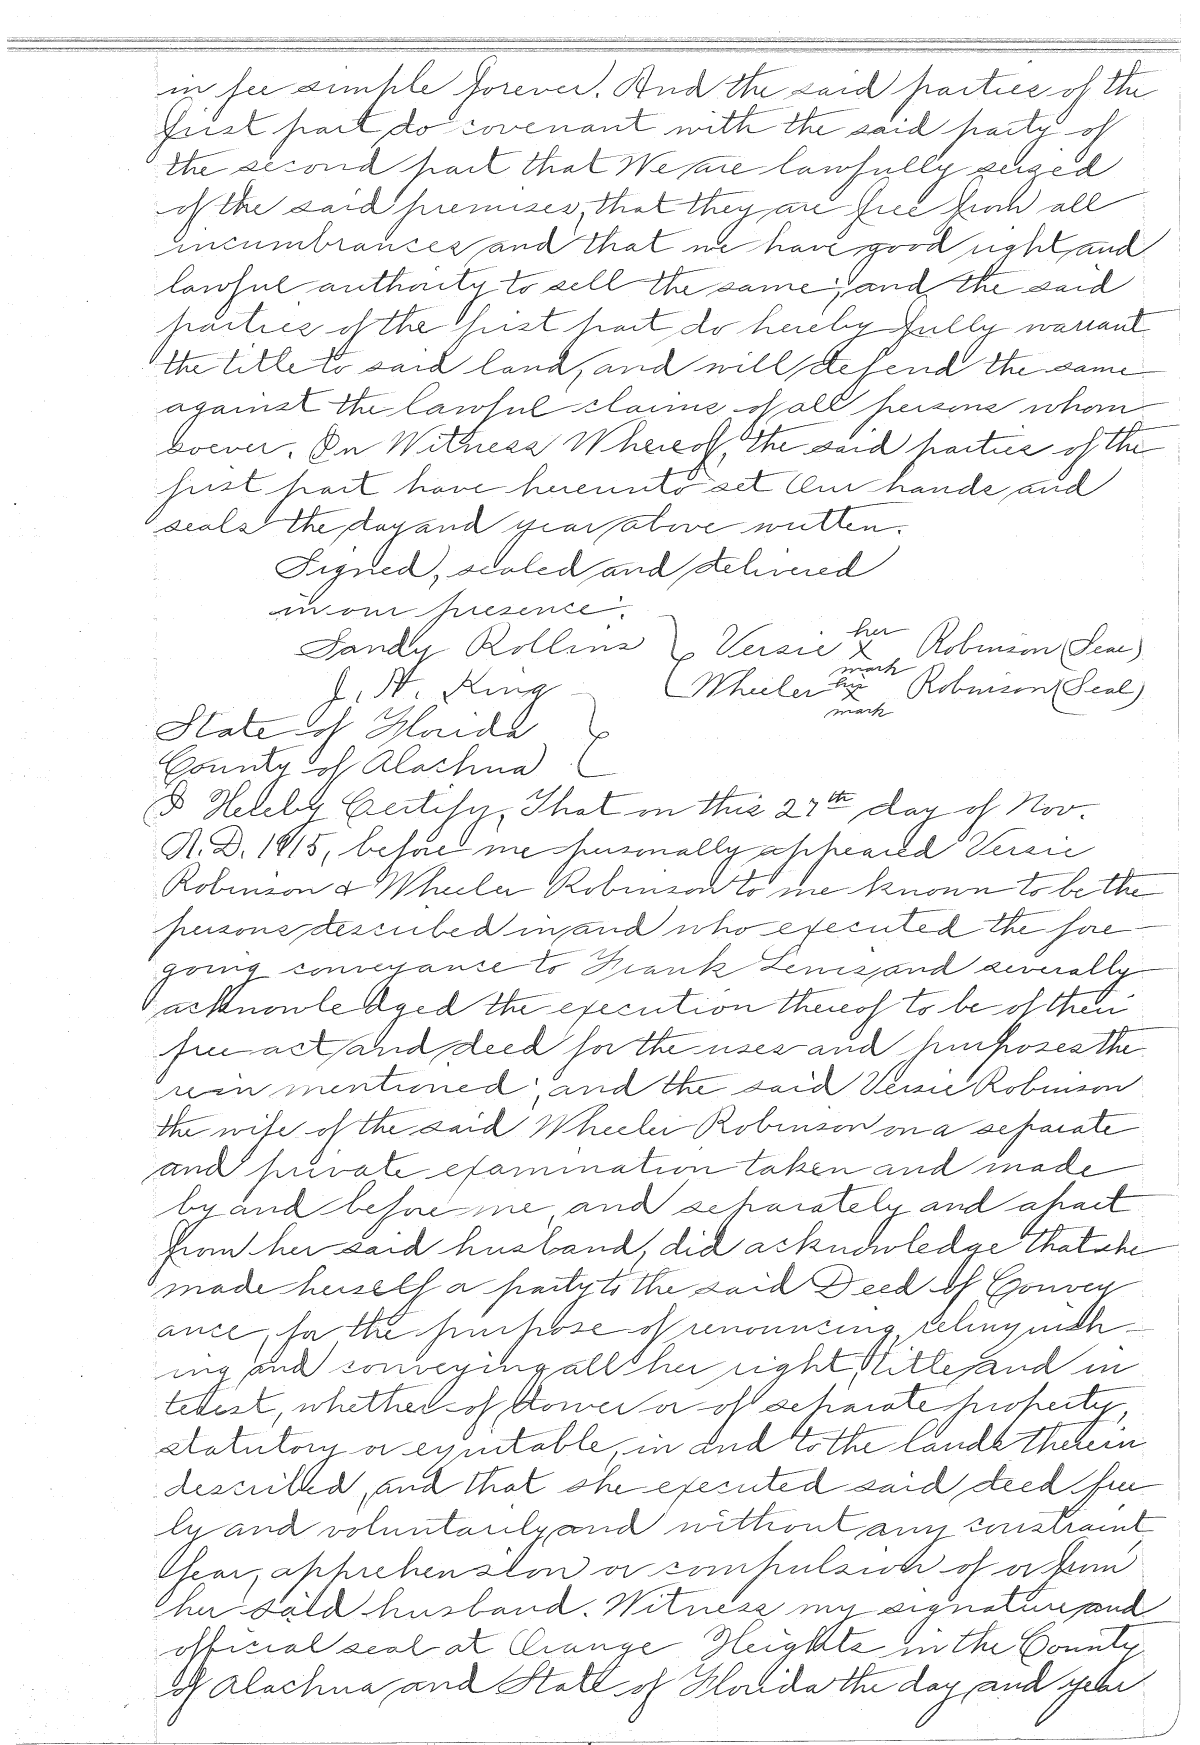 in fee simple forever. And the said parties of the
first part do covenant with the said party of
the second part that We are lawfully seized
of the said premises, that they are free from all
incumbrances and that we have good right and
lawful authority to sell the same; and the said
parties of the first part do hereby fully warrant
the title to said land, and will defend the same
against the lawful claims of all persons whom
soever. In Witness Whereof, the said parties of the
first part have hereunto set Our hands and
seals the day and year above written.
Signed, sealed and delivered
in our presence:
Sandy Rollins } Versie her X mark Robinson (Seal)
J. H. King Wheeler his X mark Robinson (Seal)
State of Florida
County of Alachua
I Hereby Certify, That on this 27th day of Nov.
A.D. 1915, before me personally appeared Versie
Robinson & Wheeler Robinson to me known to be the
persons described in and who executed the fore
going conveyance to Frank Lewis, and severally
acknowledged the execution thereof to be of their
free act and deed for the uses and purposes the
rein mentioned; and the said Versie Robinson
the wife of the said Wheeler Robinson on a separate
and private examination taken and made
by and before me, and separately and apart
from her said husband, did acknowledge that she
made herself a party to the said Deed of Convey
ance, for the purpose of renouncing, relinquish-
ing and conveying all her right, title and in
terest, whether of dower or of separate property,
statutory or equitable, in and to the lands therein
described, and that she executed said deed free
ly and voluntarily and without any constraint,
fear, apprehension or compulsion of or from
her said husband. Witness my signature and
official seal at Orange Heights in the County
of Alachua and State of Florida the day and year